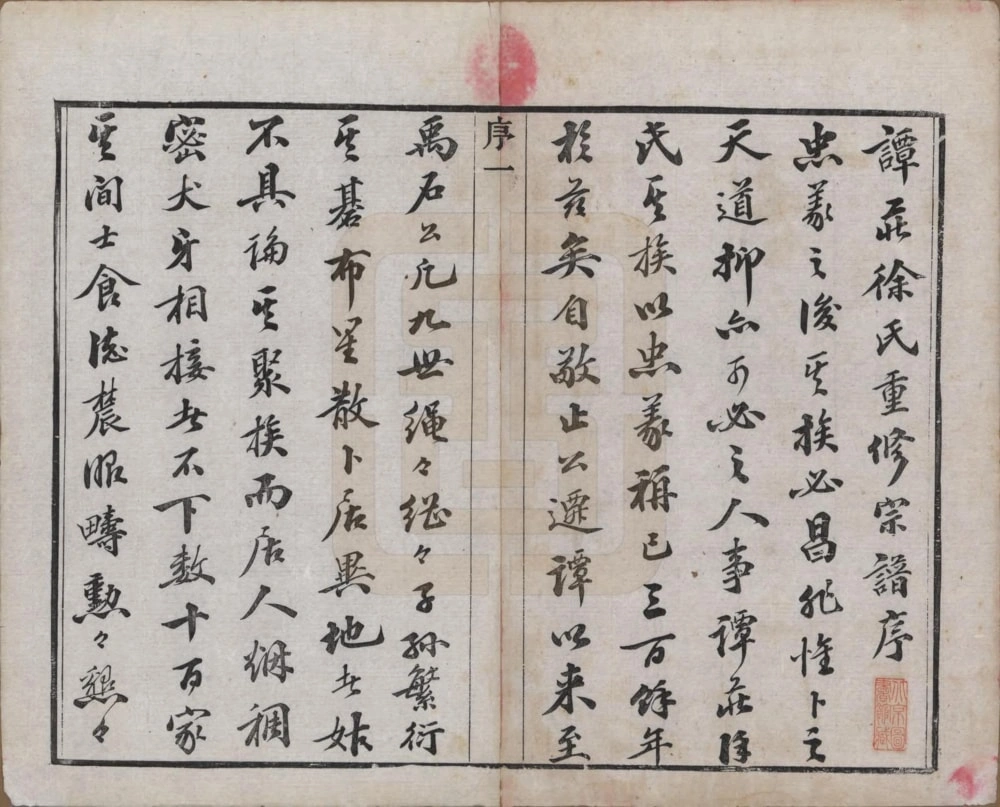 譚莊徐氏重修宗譜序
忠義之後其族必昌非惟卜之
天道抑亦可必之人事譚莊徐
氏其族以忠義稱已三百餘年
於茲矣自敬止公遷譚以來至
禹石公凡九世繩々繼々子孫繁衍
其碁布星散卜居異地者姑
不具論其聚族而居人稠
密犬牙相接者不下数十百家
其間士食德農服疇勲々懇々
序一